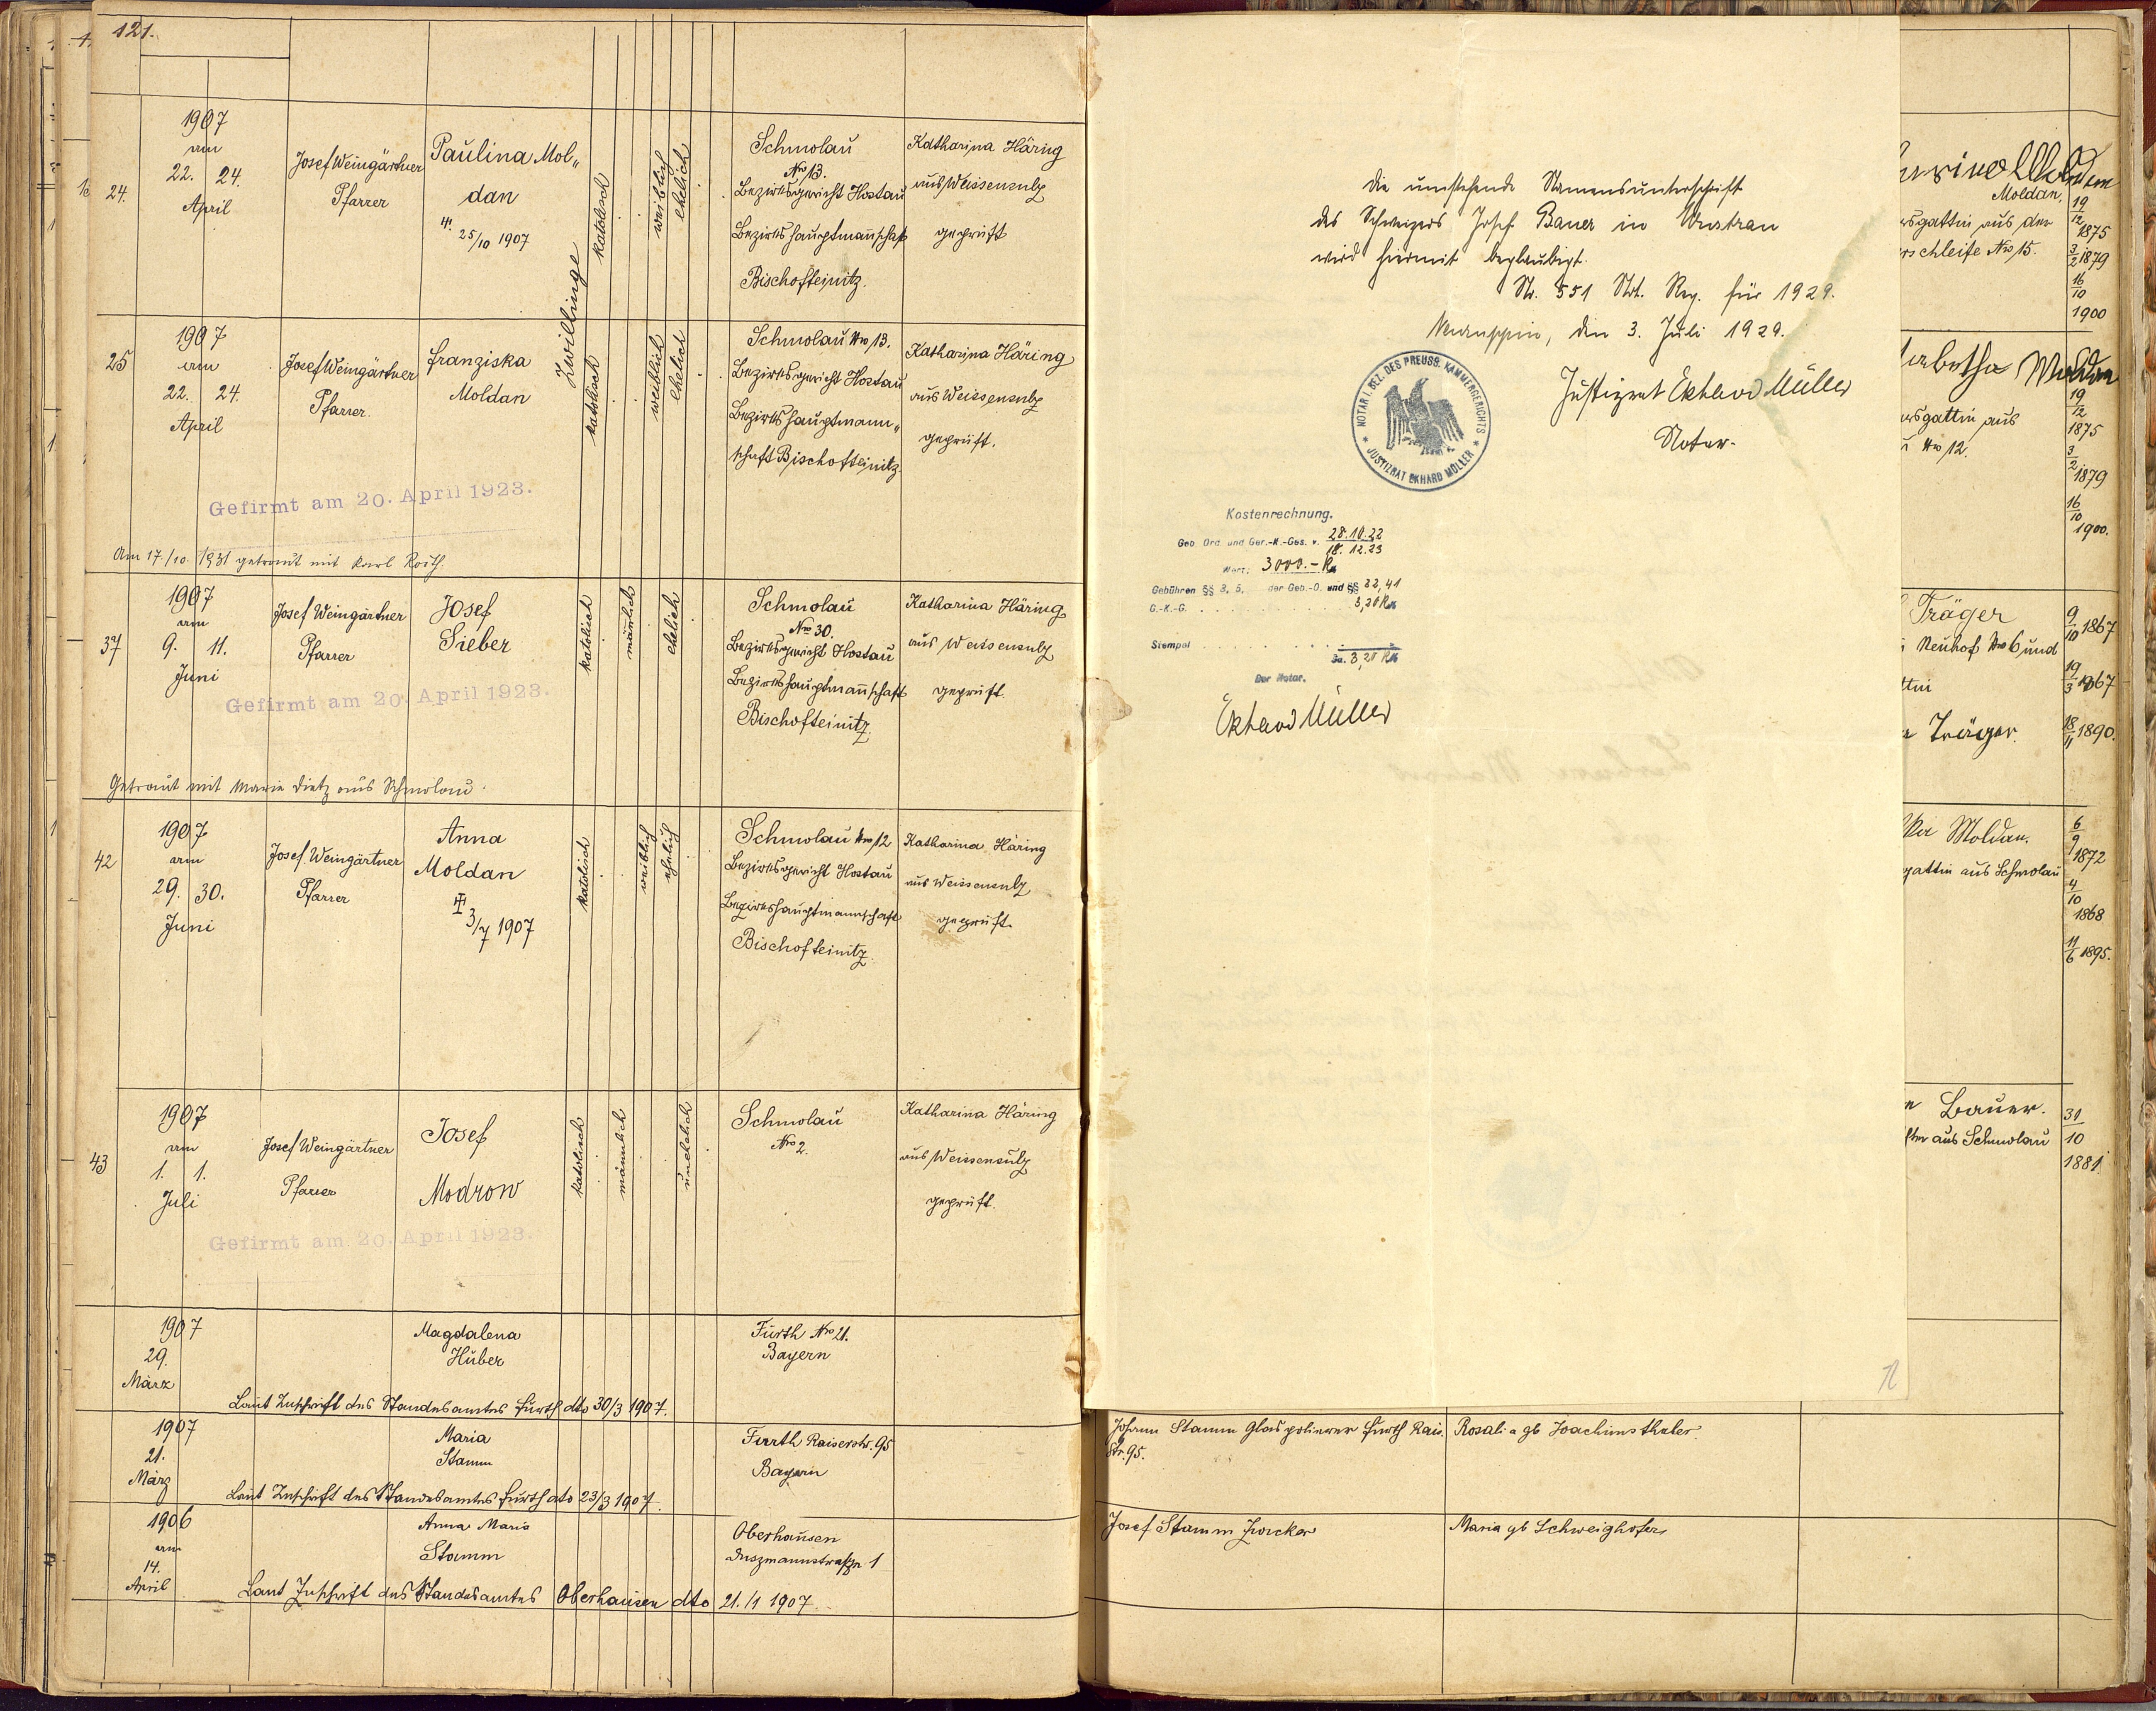 121.
24.
1907
am
22. 24.
April
Josef Weingärtner
Pfarrer
Paulina Mol„
dan
25/10 1907
Zwillinge
katolisch
weiblich
ehelich
Schmolau
Nro 13.
Bezirksgericht Hostau
Bezirkshauptmanschaft
Bischofteinitz.
Katharina Häring
aus Weissensulz
geprüft
25
1907
am
22. 24.
April
Josef Weingärtner
Pfarrer.
Franziska
Moldan
katolisch
weiblich
ehelich
Schmolau Nro 13.
Bezirksgericht Hostau
Bezirkshauptmann„
schaft Bischofteinitz.
Katharina Häring
aus Weissensulz
geprüft.
Gefirmt am 20. April 1923.
Am 17./10. 1931 getraut mit Karl Roith
37
1907
am
9. 11.
Juni
Josef Weingärtner
Pfarrer
Josef
Sieber
katolisch
mänlich
ehelich
Schmolau
Nro 30.
Bezirksgericht Hostau
Bezirkshauptmanschaft
Bischofteinitz.
Katharina Häring
aus Weissensulz
geprüft.
Gefirmt am 20. April 1923.
Getraut mit Marie Dietz aus Schmolau.
42
1907
am
29. 30.
Juni
Josef Weingärtner
Pfarrer
Anna
Moldan
3/7 1907
katolisch
weiblich
ehelich
Schmolau Nro 12
Bezirksgericht Hostau
Bezirkshauptmannschaft
Bischofteinitz.
Katharina Häring
aus Weissensulz
geprüft.
43
1907
am
1. 1.
Juli
Josef Weingärtner
Pfarrer
Josef
Modrow
katolisch
männlich
unehelich
Schmolau
Nro 2.
Katharina Häring
aus Weissensulz
geprüft.
Gefirmt am 20. April 1923.
1907
29.
März
Magdalena
Huber
Fürth Nro 21.
Bayern
Laut Zuschrift des Standesamtes Fürth dto 30/3 1907.
1907
21.
März
Maria
Stamm
Fürth Kaiserstr. 95
Bayern
Laut Zuschrift des Standesamtes Fürth dto 23/3 1907.
1906
am
14.
April
Anna Maria
Stamm
Oberhausen
1
Laut Zuschrift des Standesamtes Oberhausen dto 21./1 1907.
Die umstehende Namensunterschrift
des Schweizers Josef Bauer in Wustrau
wird hiermit beglaubigt.
Nr. 551 Not. Reg. für 1929.
Neuruppin, den 3. Juli 1929.
Justizrat Ekhard Müller
Notar.
NOTAR I. BEZ. DES PREUSS. KAMMERGERICHTS
JUSTIZRAT EKHARD MÜLLER
Kostenrechnung.
Geb. Ord. und Ger.-K.-Ges. v. 28.10.22
18.12.23
Wert: 3000.-
Gebühren §§ 3, 5, der Geb.-O. und §§ 32, 41
G.-K.-G. 3,20
Stempel
Sa. 3,20
Der Notar.
Ekhard Müller
Moldan,
rsgattin aus der
rschleife Nro 15.
19
12 1875
3
2 1879
16
10
1900
abetha Moldan
rsgattin aus
Nro 12.
19
12
1875
3
2 1879
16
10
1900.
Träger
Neuhof Nro 6 und
ttin
Träger.
9
10 1867
19
3 1867
18
11 1890.
ka Moldan.
gattin aus Schmolau
6
9
1872
4
10
1868
11
6 1895.
Bauer.
aus Schmolau
31
10
1881
Johann Stamm Glaspolierer Fürth Kais. Str. 95.
Rosali a gb Joachimsthaler
Josef Stamm
Maria gb Schweighofer